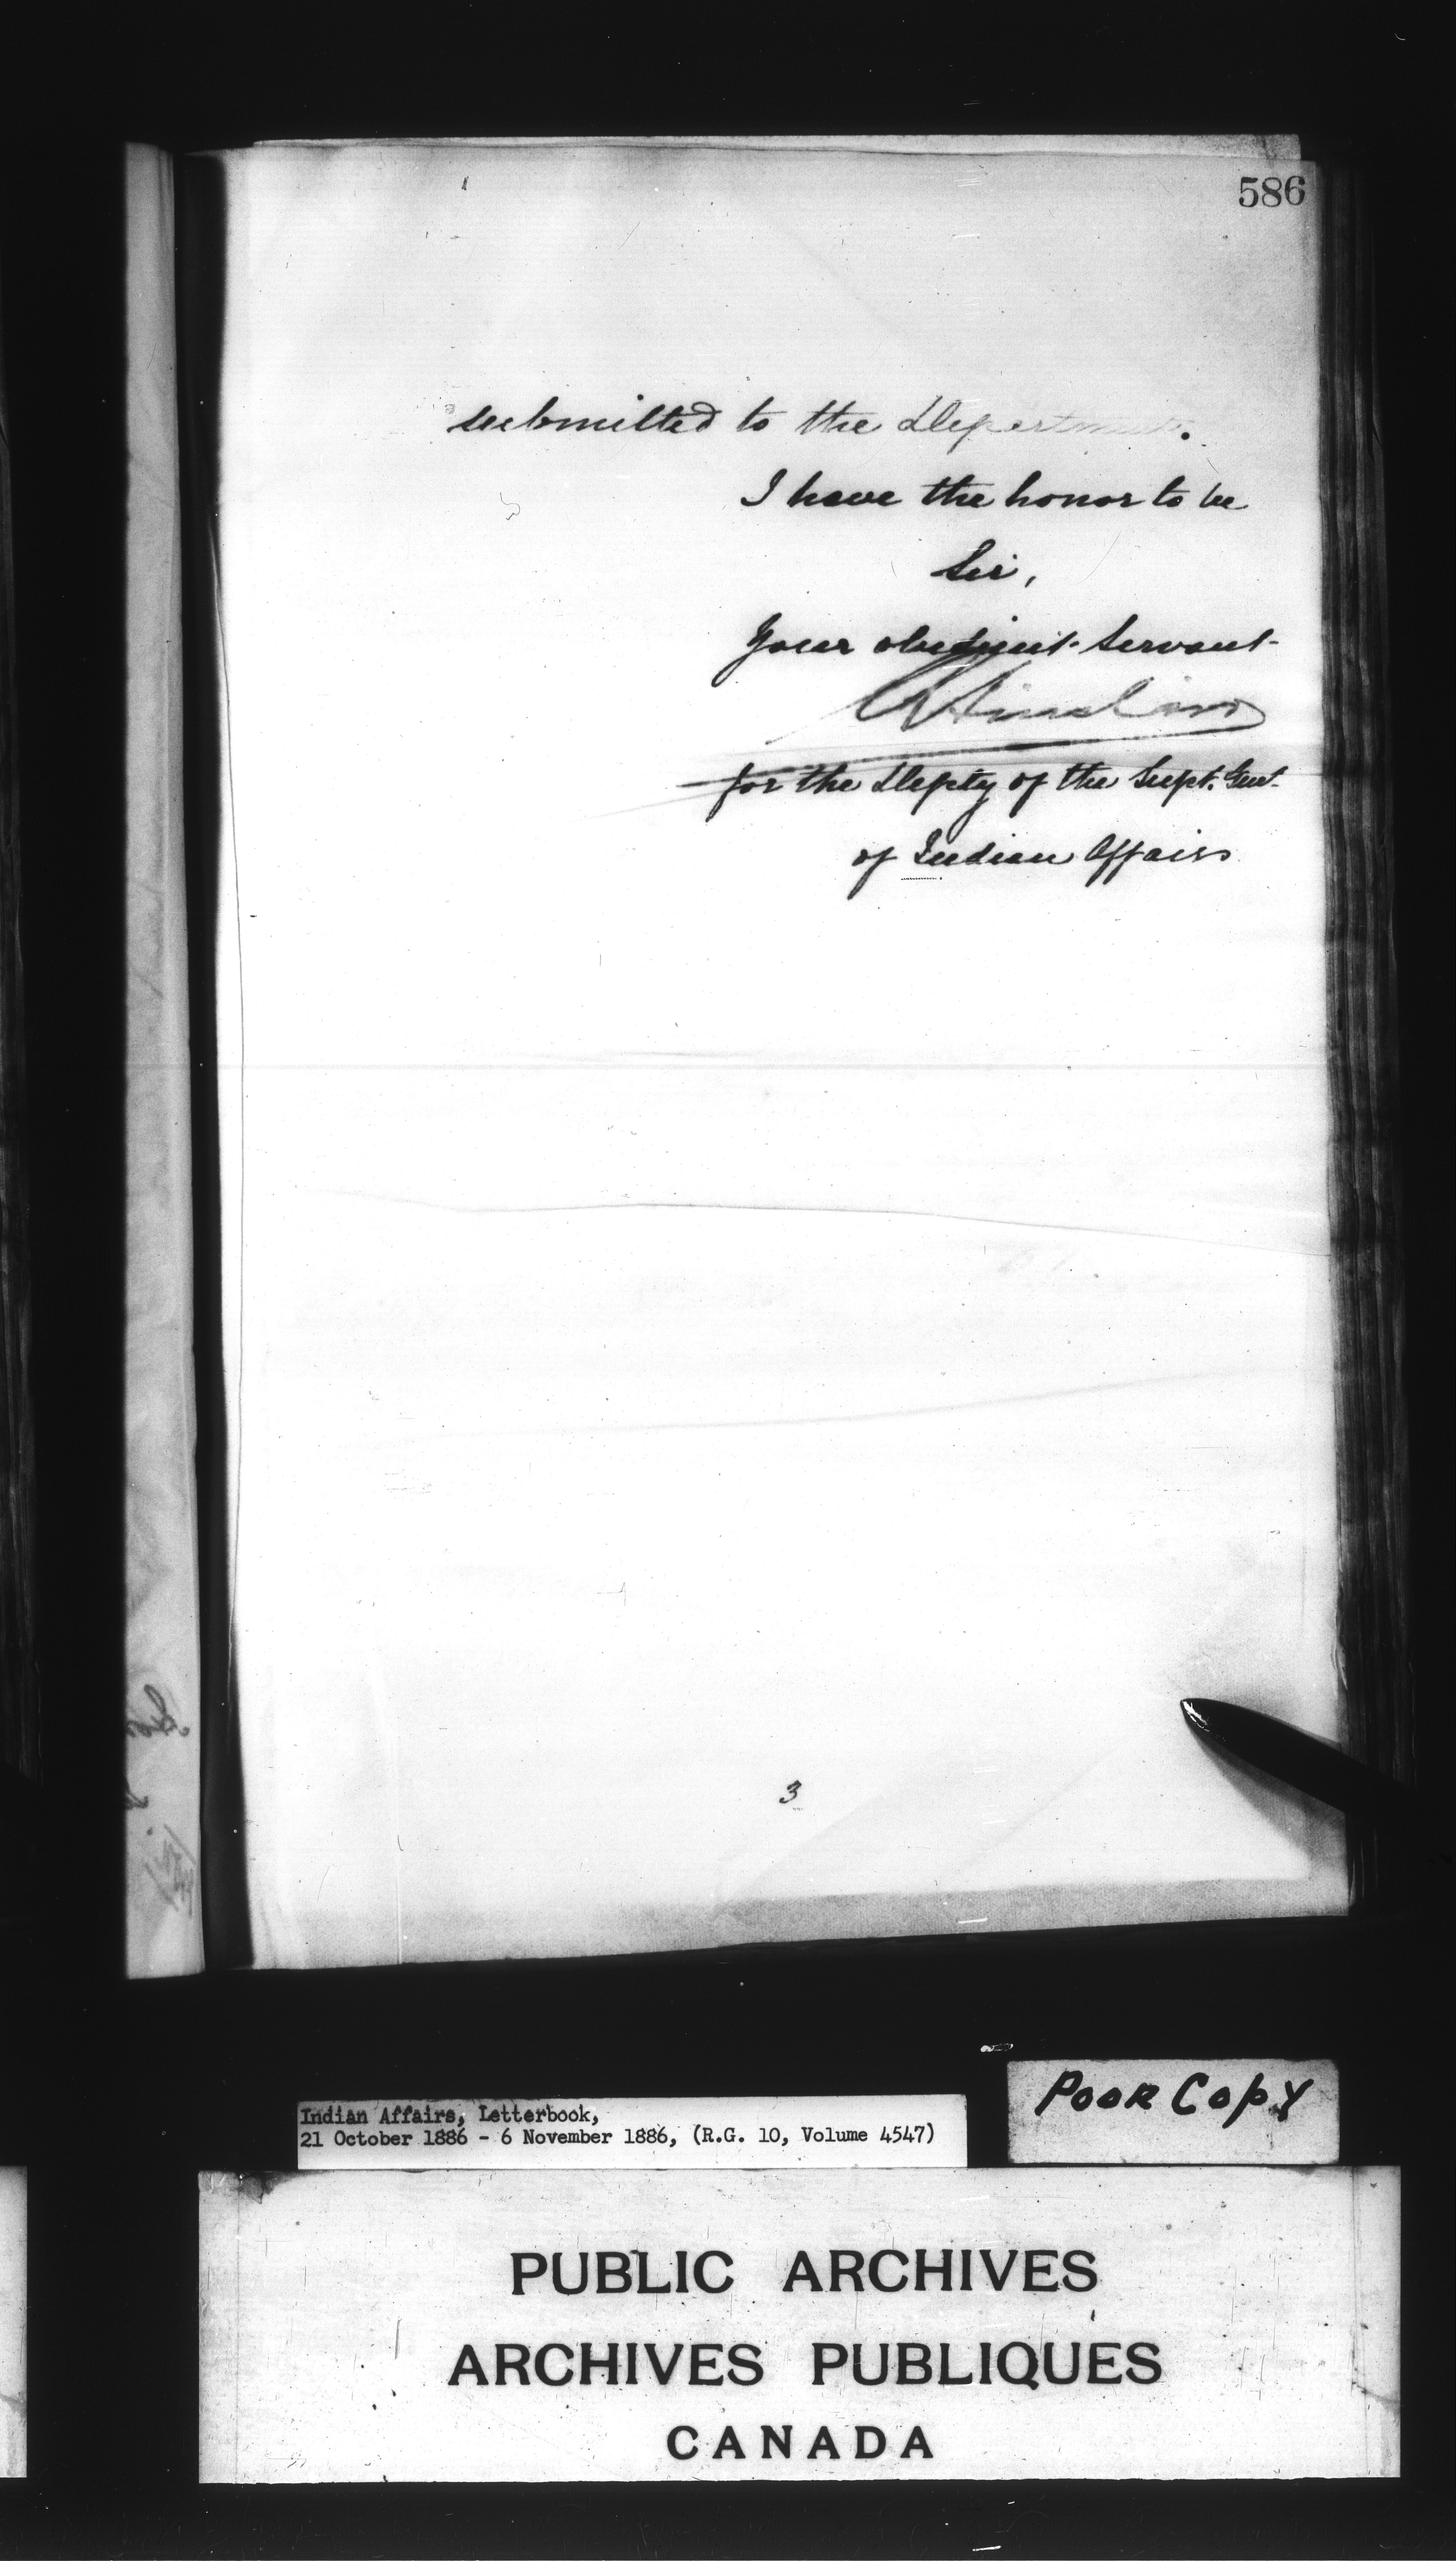 586
submitted to the Department.
I have the honor to be
Sir,
Your obedient Servant
for the Depty of the Supt. Genl.
of Indian Affairs
3
Indian Affairs, Letterbook,
21 October 1886 - 6 November 1886, (R.G. 10, Volume 4547)
POOR COPY
PUBLIC ARCHIVES
ARCHIVES PUBLIQUES
CANADA